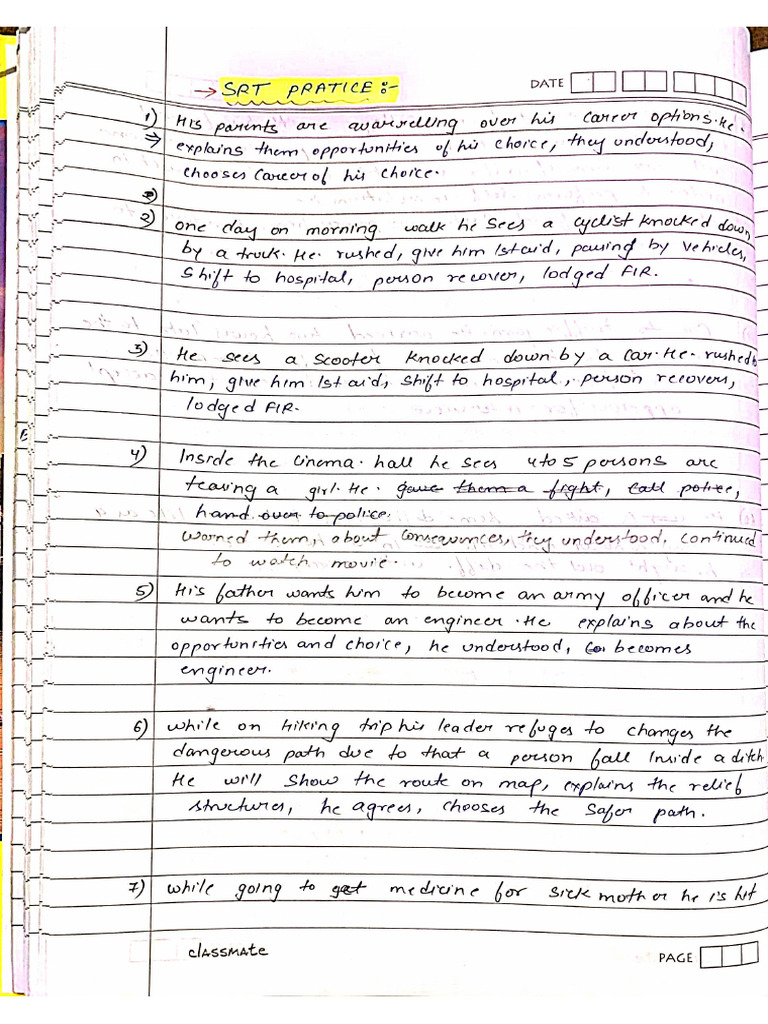 → SRT PRATICE :-
DATE
1) His parents are quarrelling over his career options. He
⇒ explains them opportunities of his choice, they understood,
chooses career of his choice.
2)
2) one day on morning walk he sees a cyclist knocked down
by a truck. He rushed, give him 1st aid, passing by vehicles,
shift to hospital, person recover, lodged FIR.
3) He sees a scooter knocked down by a car. He rushed to
him, give him 1st aid, shift to hospital, person recovers,
lodged FIR.
4) Inside the cinema hall he sees 4 to 5 persons are
teasing a girl. He gave them a fight, call police,
hand over to police.
warned them, about consequences, they understood, continued
to watch movie.
5) His father wants him to become an army officer and he
wants to become an engineer. He explains about the
opportunities and choice, he understood, becomes
engineer.
6) while on hiking trip his leader refuges to changes the
dangerous path due to that a person fall inside a ditch
He will show the route on map, explains the relief
structures, he agrees, chooses the safer path.
7) while going to get medicine for sick mother he is hit
classmate
PAGE